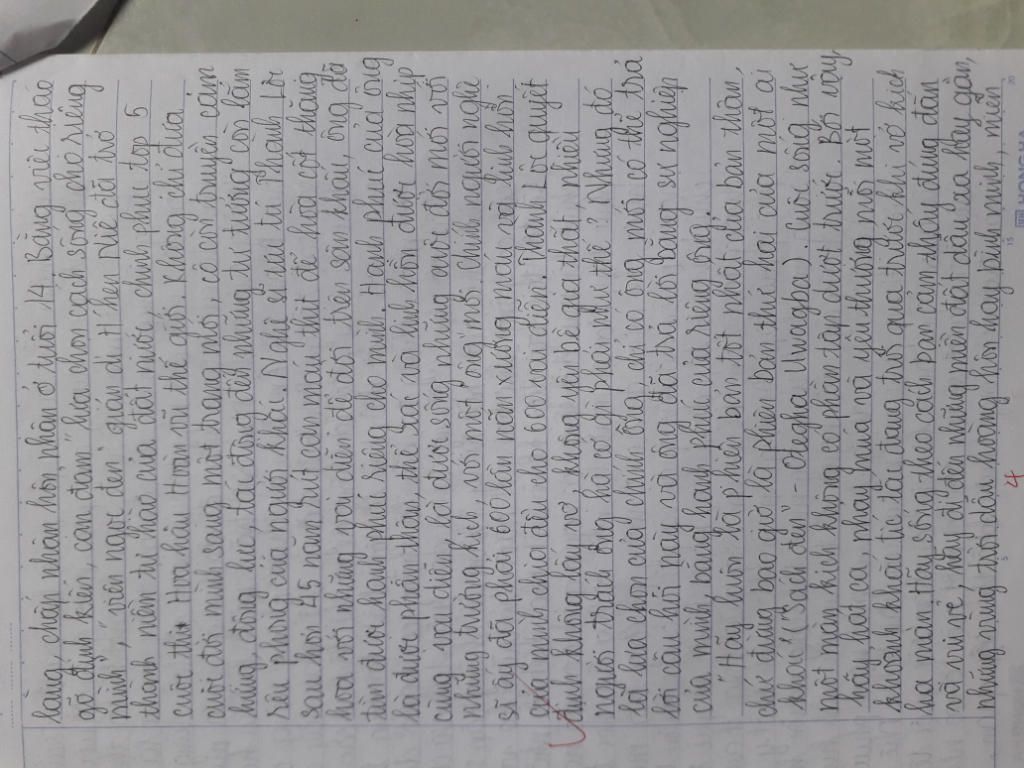 lắng chấp nhận hôn nhân ở tuổi 14. Bằng việc tháo
gỡ định kiến, can đảm "lựa chọn cách sống cho riêng
mình", "viên ngọc đen" giản dị H'Hen Niê đã trở
thành niềm tự hào của đất nước, chinh phục top 5
cuộc thi Hoa hậu Hoàn vũ thế giới. Không chỉ đưa
cuộc đời mình sang một trang mới, cô còn truyền cảm
hứng, động lực, tác động đến những tư tưởng còn lấm
rêu phong của người khác. Nghệ sĩ ưu tú Thành Lộc
sau hơn 45 năm rút cạn máu thịt để hòa cốt thăng
hoa với những vai diễn để đời trên sân khấu, ông đã
tìm được hạnh phúc riêng cho mình. Hạnh phúc của ông
là được phần thân, thể xác và linh hồn được hòa nhịp
cùng vai diễn, là được sống những cuộc đời mới với
những trường kịch, với một "ông" mới. Chính người nghệ
sĩ ấy đã phải 600 lần nằm xuống, máu và linh hồn
của mình chia đều cho 600 vai diễn. Thành Lộc quyết
định không lấy vợ, không yên bề gia thất, nhiều
người trách ông "hà cớ gì phải như thế". Nhưng đó
là lựa chọn của chính ông, chỉ có ông mới có thể trả
lời câu hỏi này và ông đã trả lời bằng sự nghiệp
của mình, bằng hạnh phúc của riêng ông.
"Hãy luôn là phiên bản tốt nhất của bản thân,
chứ đừng bao giờ là phiên bản thứ hai của một ai
khác" ("Sách đen" - Ofegha Uwagba). Cuộc sống như
một màn kịch không có phần tập dượt trước. Bởi vậy
hãy hát ca, nhảy múa và yêu thương mỗi một
khoảnh khắc tíc tắc đang trôi qua trước khi vở kịch
hạ màn. Hãy sống theo cách bạn cảm thấy đúng đắn
và vui vẻ, hãy đi đến những miền đất dẫu xa hay gần,
những vùng trời dẫu hoàng hôn hay bình minh, miễn
4